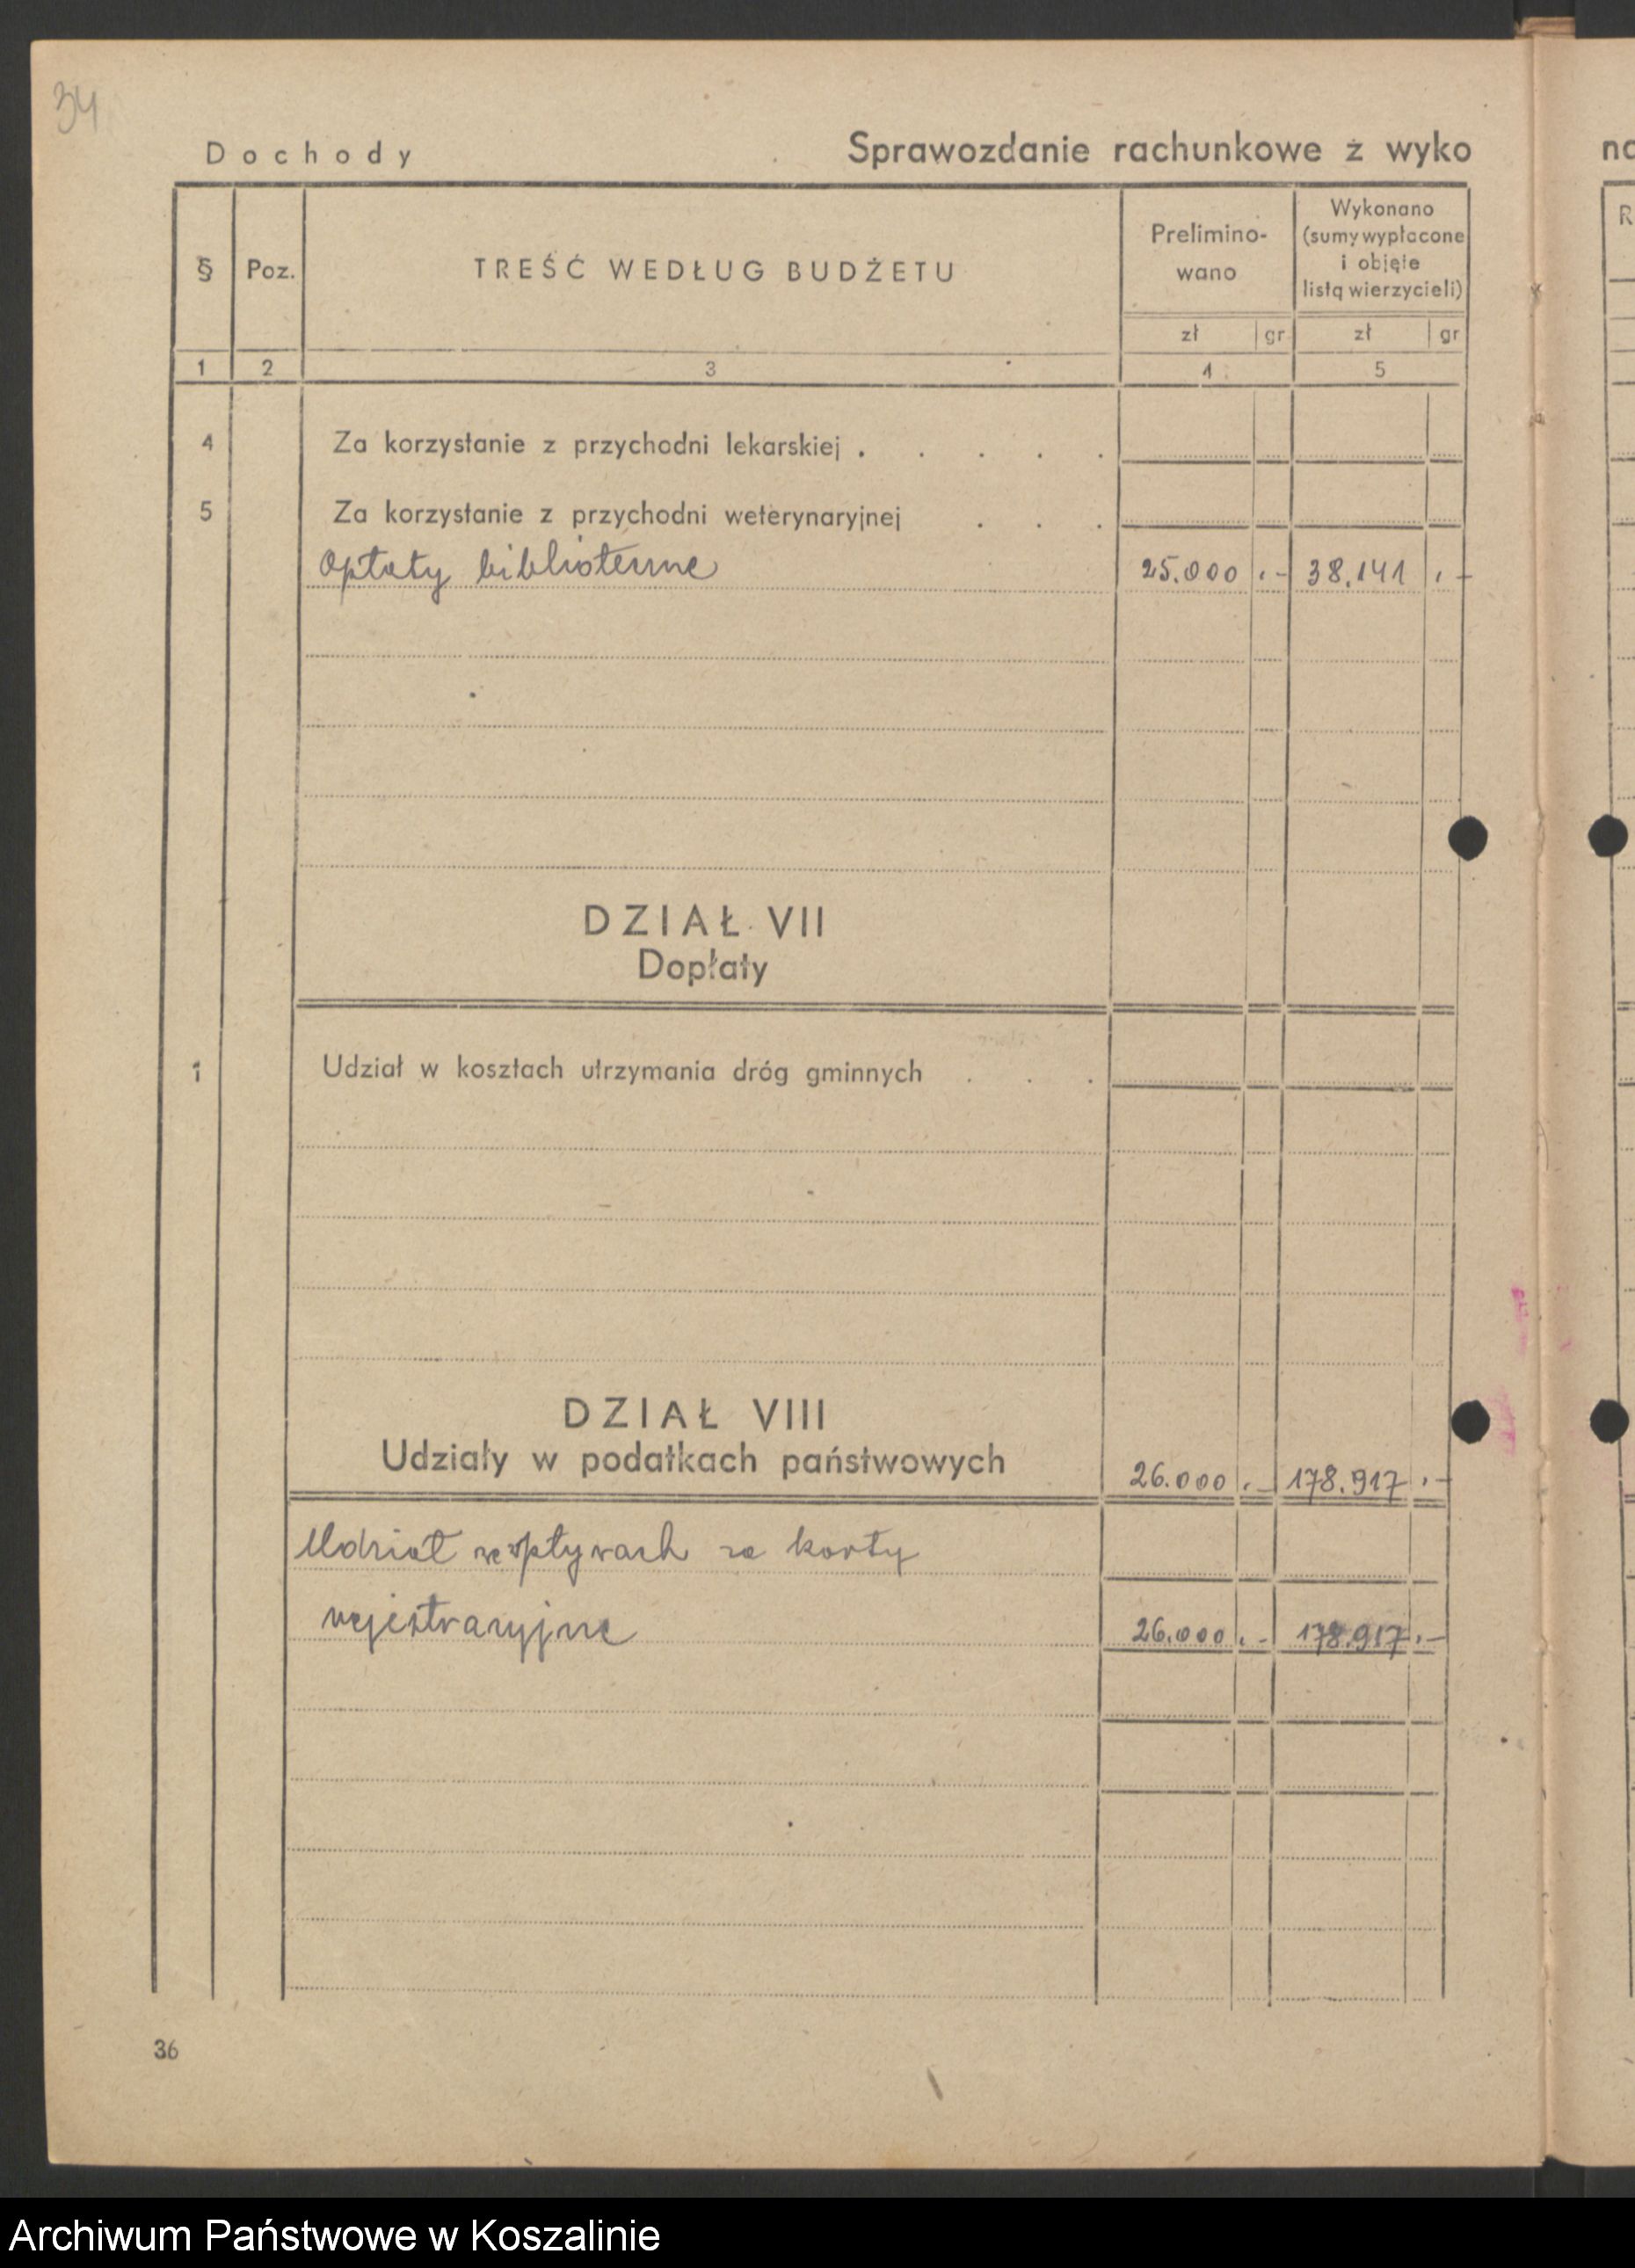 34
Dochody
Sprawozdanie rachunkowe z wyko
§
Poz.
TREŚĆ WEDŁUG BUDŻETU
Prelimino-
wano
Wykonano
(sumy wypłacone
i objęte
listą wierzycieli)
zł gr zł gr
1 2 3 4 5
4 Za korzystanie z przychodni lekarskiej . . . . .
5 Za korzystanie z przychodni weterynaryjnej . . .
Opłaty biblioteczne 25.000 .- 38.141 .-
DZIAŁ VII
Dopłaty
1 Udział w kosztach utrzymania dróg gminnych . . .
DZIAŁ VIII
Udziały w podatkach państwowych 26.000 .- 178.917 .-
Udział we wpływach za karty
rejestracyjne 26.000 .- 178.917 .-
36
na
R
Archiwum Państwowe w Koszalinie